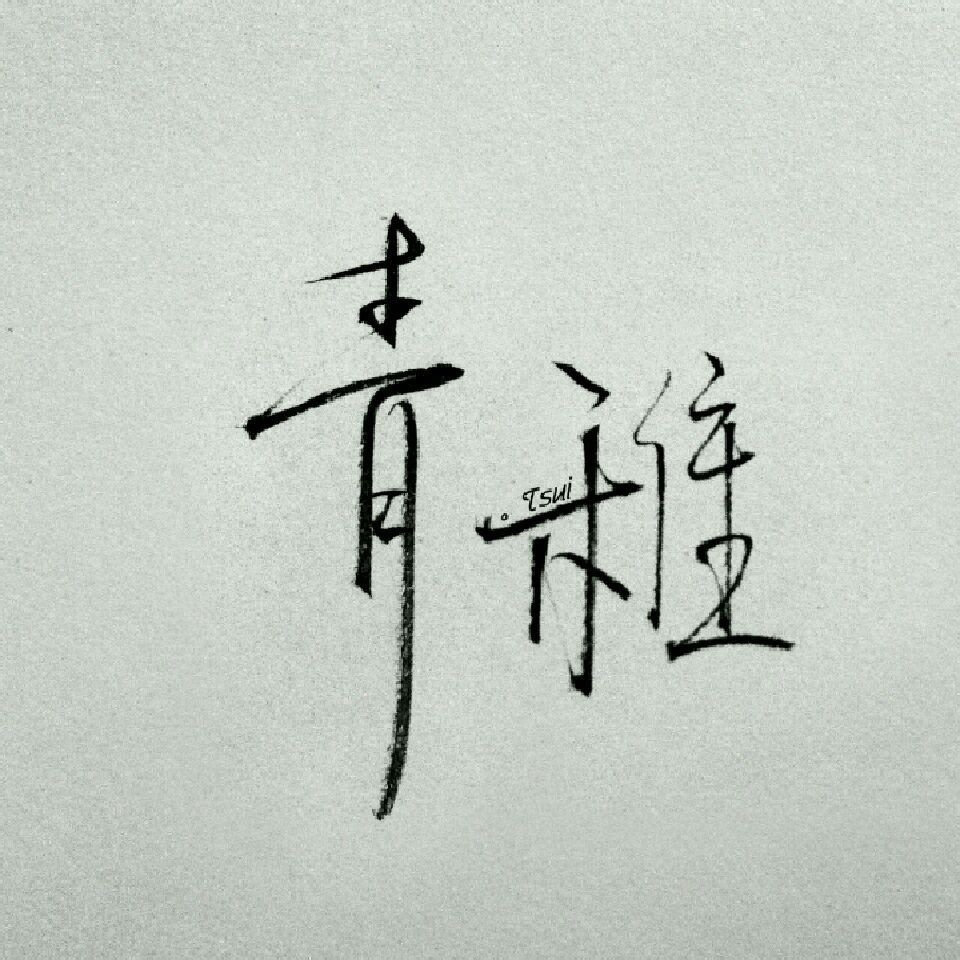 青稚
。Tsui